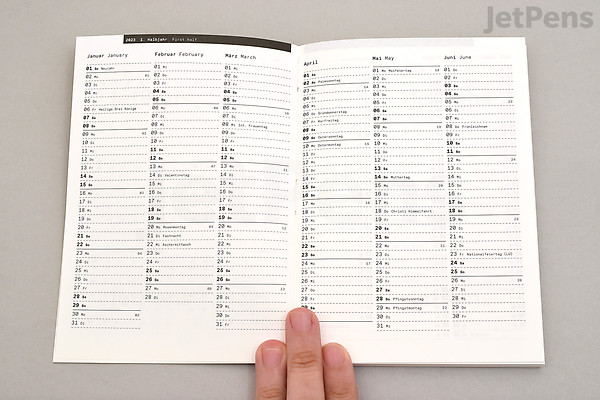 JetPens
2023 1. Halbjahr First half
Januar January
01 So Neujahr
02 Mo 01
03 Di
04 Mi
05 Do
06 Fr Heilige Drei Könige
07 Sa
08 So
09 Mo 02
10 Di
11 Mi
12 Do
13 Fr
14 Sa
15 So
16 Mo 03
17 Di
18 Mi
19 Do
20 Fr
21 Sa
22 So
23 Mo 04
24 Di
25 Mi
26 Do
27 Fr
28 Sa
29 So
30 Mo 05
31 Di
Februar February
01 Mi
02 Do
03 Fr
04 Sa
05 So
06 Mo 06
07 Di
08 Mi
09 Do
10 Fr
11 Sa
12 So
13 Mo 07
14 Di Valentinstag
15 Mi
16 Do
17 Fr
18 Sa
19 So
20 Mo Rosenmontag 08
21 Di Fastnacht
22 Mi Aschermittwoch
23 Do
24 Fr
25 Sa
26 So
27 Mo 09
28 Di
März March
01 Mi
02 Do
03 Fr
04 Sa
05 So
06 Mo 10
07 Di
08 Mi Int. Frauentag
09 Do
10 Fr
11 Sa
12 So
13 Mo 11
14 Di
15 Mi
16 Do
17 Fr
18 Sa
19 So
20 Mo 12
21 Di
22 Mi
23 Do
24 Fr
25 Sa
26 So
27 Mo 13
28 Di
29 Mi
30 Do
31 Fr
April
01 Sa
02 So Palmsonntag
03 Mo 14
04 Di
05 Mi
06 Do Gründonnerstag
07 Fr Karfreitag
08 Sa
09 So Ostersonntag
10 Mo Ostermontag 15
11 Di
12 Mi
13 Do
14 Fr
15 Sa
16 So
17 Mo 16
18 Di
19 Mi
20 Do
21 Fr
22 Sa
23 So
24 Mo 17
25 Di
26 Mi
27 Do
28 Fr
29 Sa
Mai May
01 Mo Maifeiertag 18
02 Di
03 Mi
04 Do
05 Fr
06 Sa
07 So
08 Mo 19
09 Di
10 Mi
11 Do
12 Fr
13 Sa
14 So Muttertag
15 Mo 20
16 Di
17 Mi
18 Do Christi Himmelfahrt
19 Fr
20 Sa
21 So
22 Mo 21
23 Di
24 Mi
25 Do
26 Fr
27 Sa
28 So Pfingstsonntag
29 Mo Pfingstmontag 22
30 Di
31 Mi
Juni June
01 Do
02 Fr
03 Sa
04 So
05 Mo 23
06 Di
07 Mi
08 Do Fronleichnam
09 Fr
10 Sa
11 So
12 Mo 24
13 Di
14 Mi
15 Do
16 Fr
17 Sa
18 So
19 Mo 25
20 Di
21 Mi
22 Do
23 Fr Nationalfeiertag (LU)
24 Sa
25 So
26 Mo 26
27 Di
28 Mi
29 Do
30 Fr